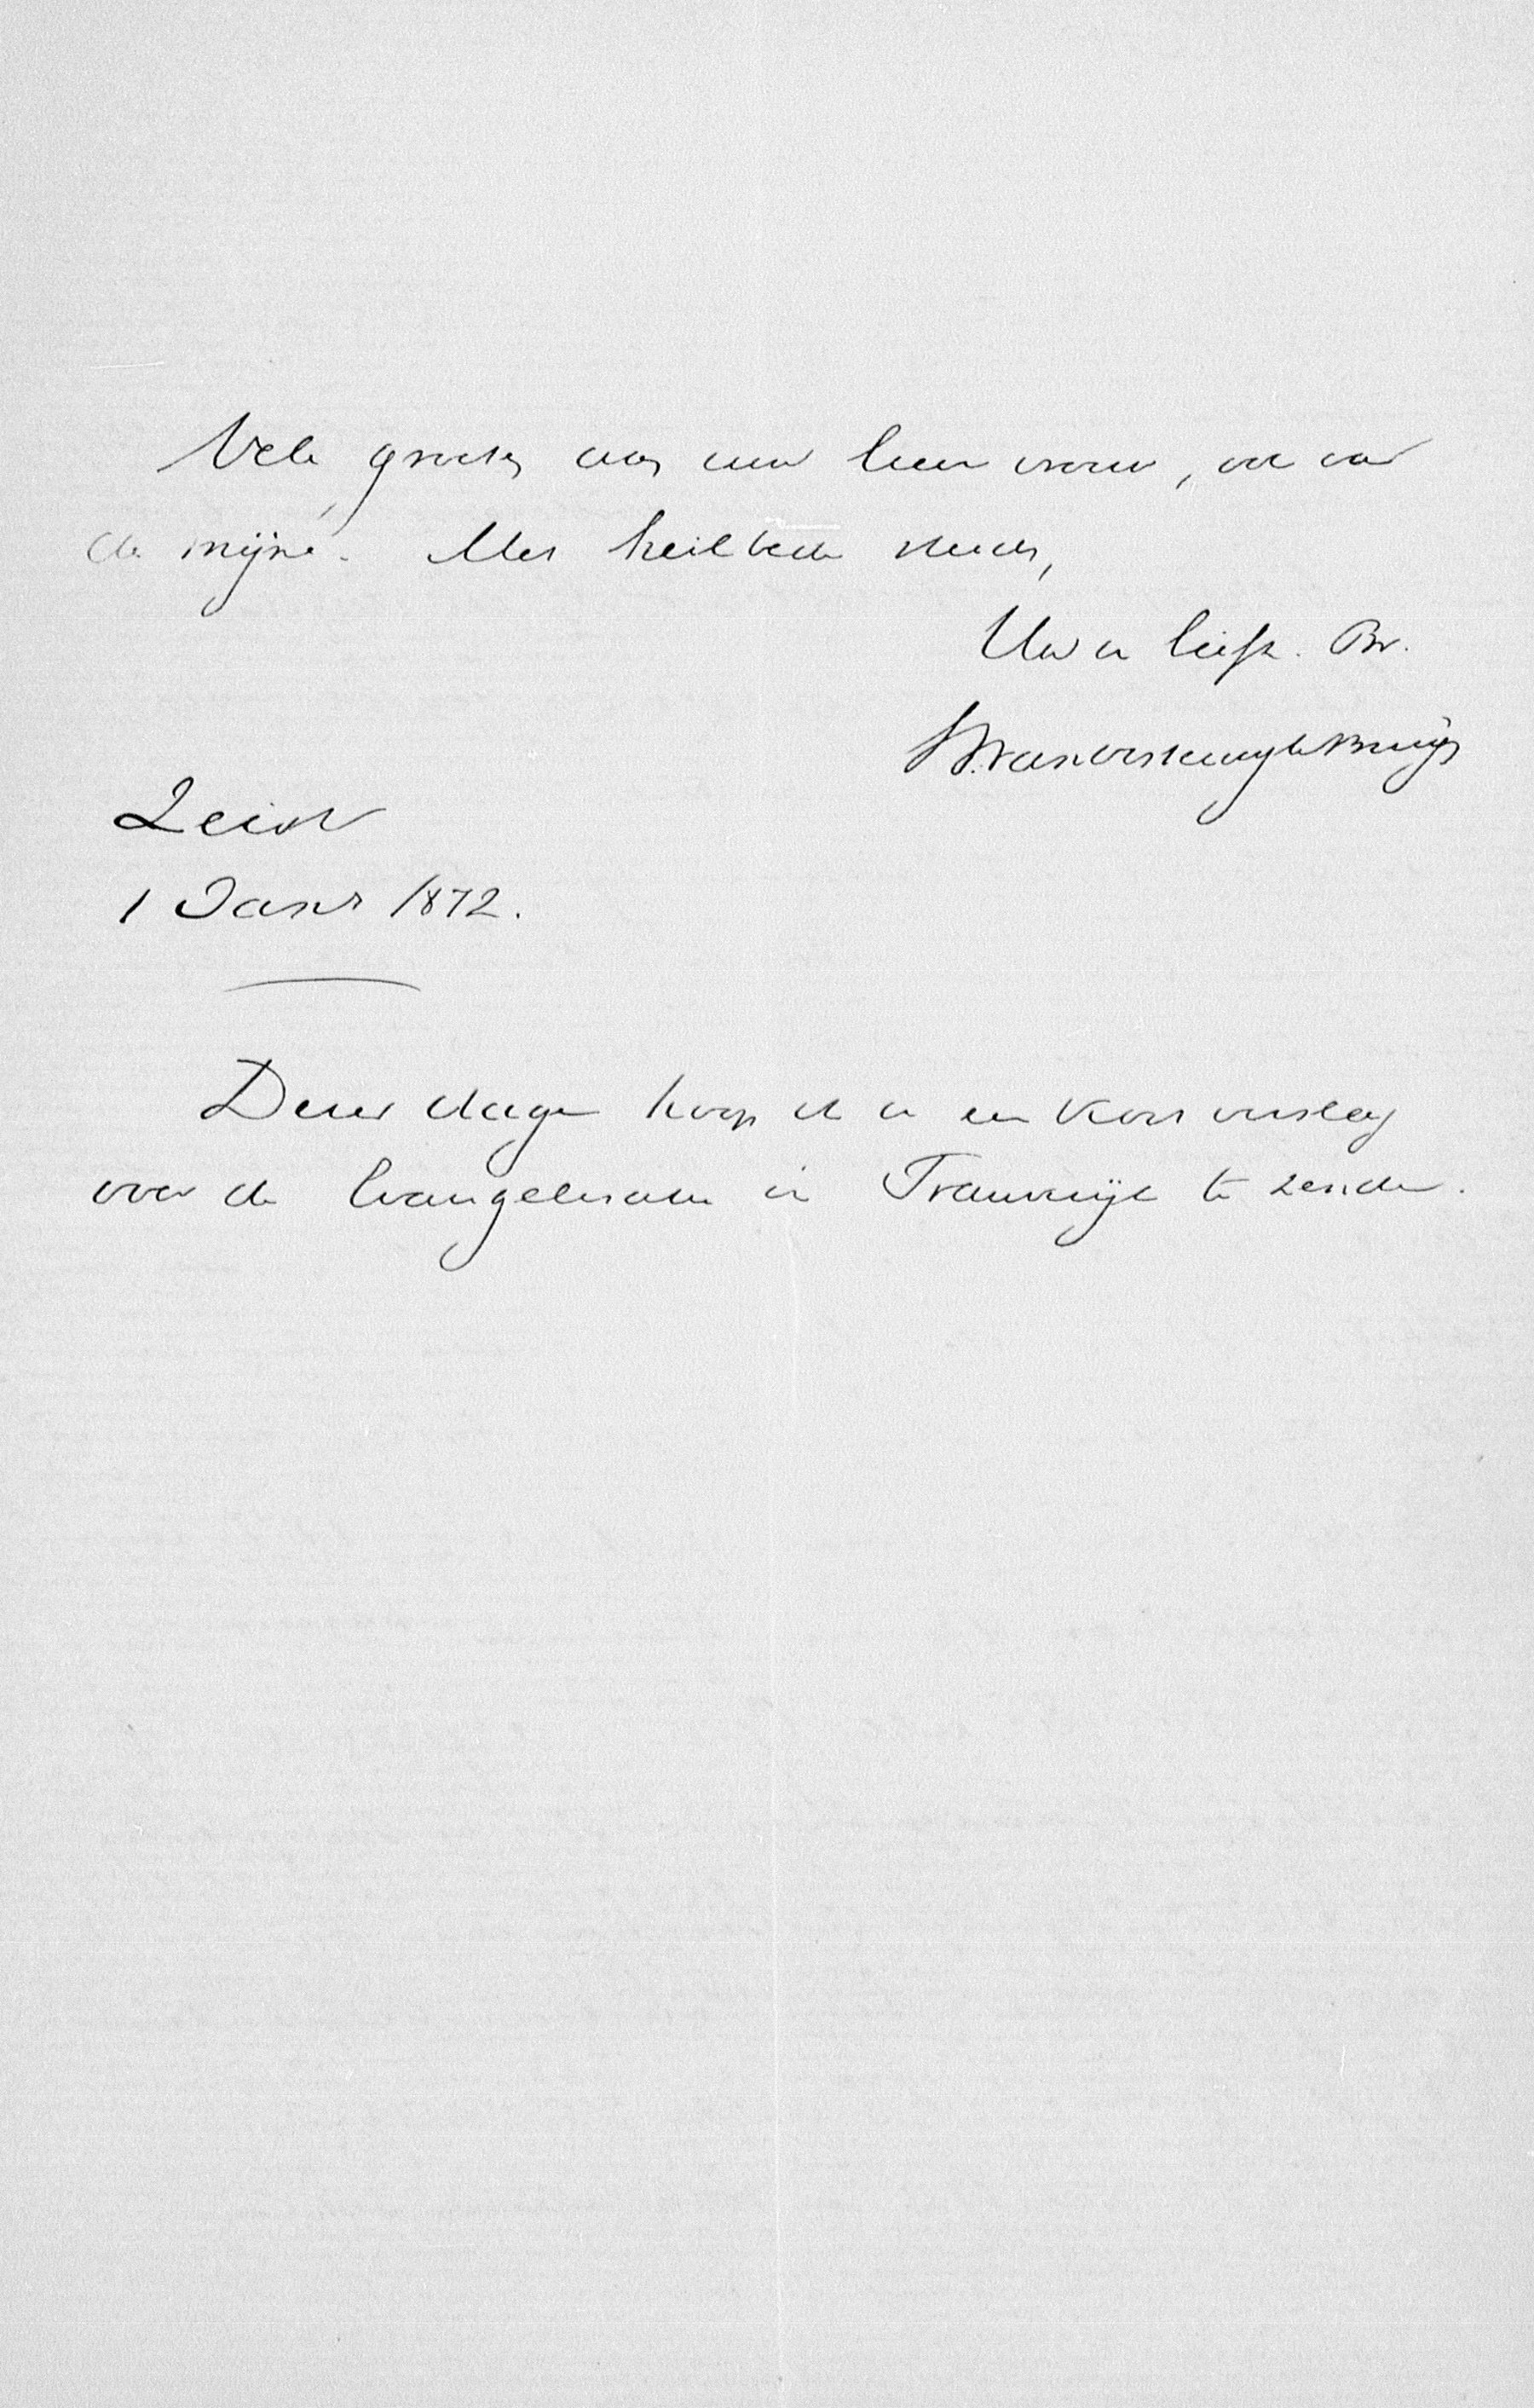 Vele groeten aan uw lieve vrouw, ook van
de mijne. Met heilbede steeds,
Uw in liefde. Br.
Leiden
1 Janr 1872.
Dezer dagen hoop ik u een kort verslag
over de Evangelisatie in Frankrijk te zenden.